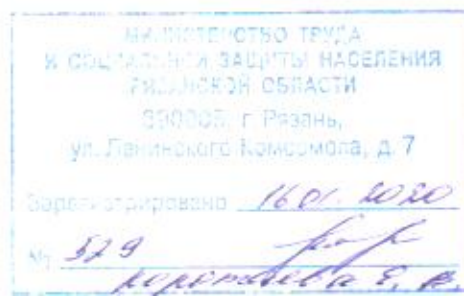 МИНИСТЕРСТВО ТРУДА
И СОЦИАЛЬНОЙ ЗАЩИТЫ НАСЕЛЕНИЯ
РЯЗАНСКОЙ ОБЛАСТИ
390005, г. Рязань,
ул. Ленинского Комсомола, д. 7
Зарегистрировано 16.01.2020
№ 529
Коротаева Е. В.